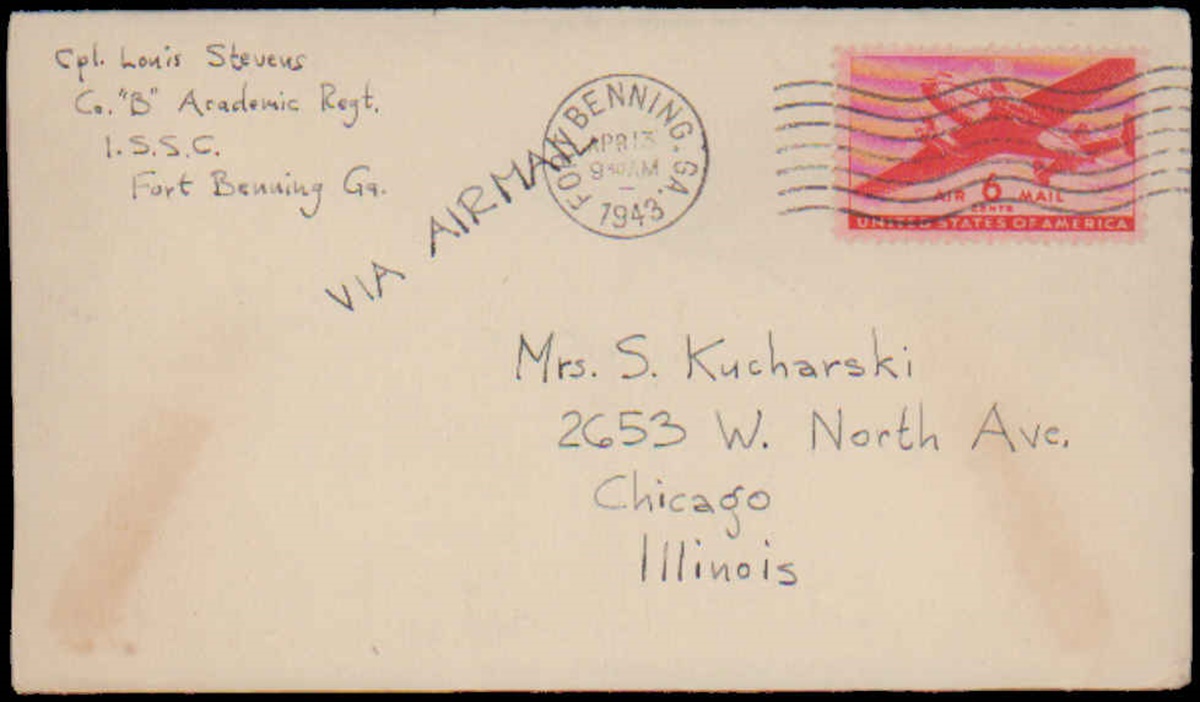 Cpl. Louis Stevens
Co. "B" Academic Regt.
I.S.S.C.
Fort Benning Ga.
VIA AIRMAIL
FORT BENNING. GA.
APR 13
9 30 AM
1943
AIR 6 MAIL
CENTS
UNITED STATES OF AMERICA
Mrs. S. Kucharski
2653 W. North Ave.
Chicago
Illinois